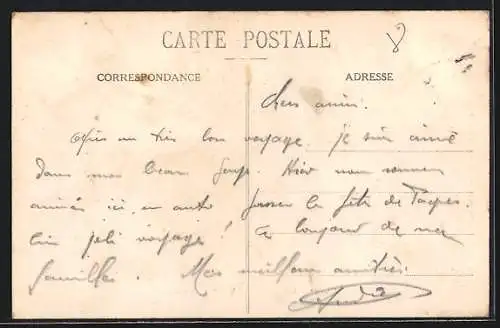 CARTE POSTALE
CORRESPONDANCE
ADRESSE
Chers amis.
Après un très bon voyage je suis arrivé
dans mon beau Hier nous sommes
arrivés ici en auto passer la fête de Pâques.
joli voyage! de
familles. Mes meilleurs amitiés.
André